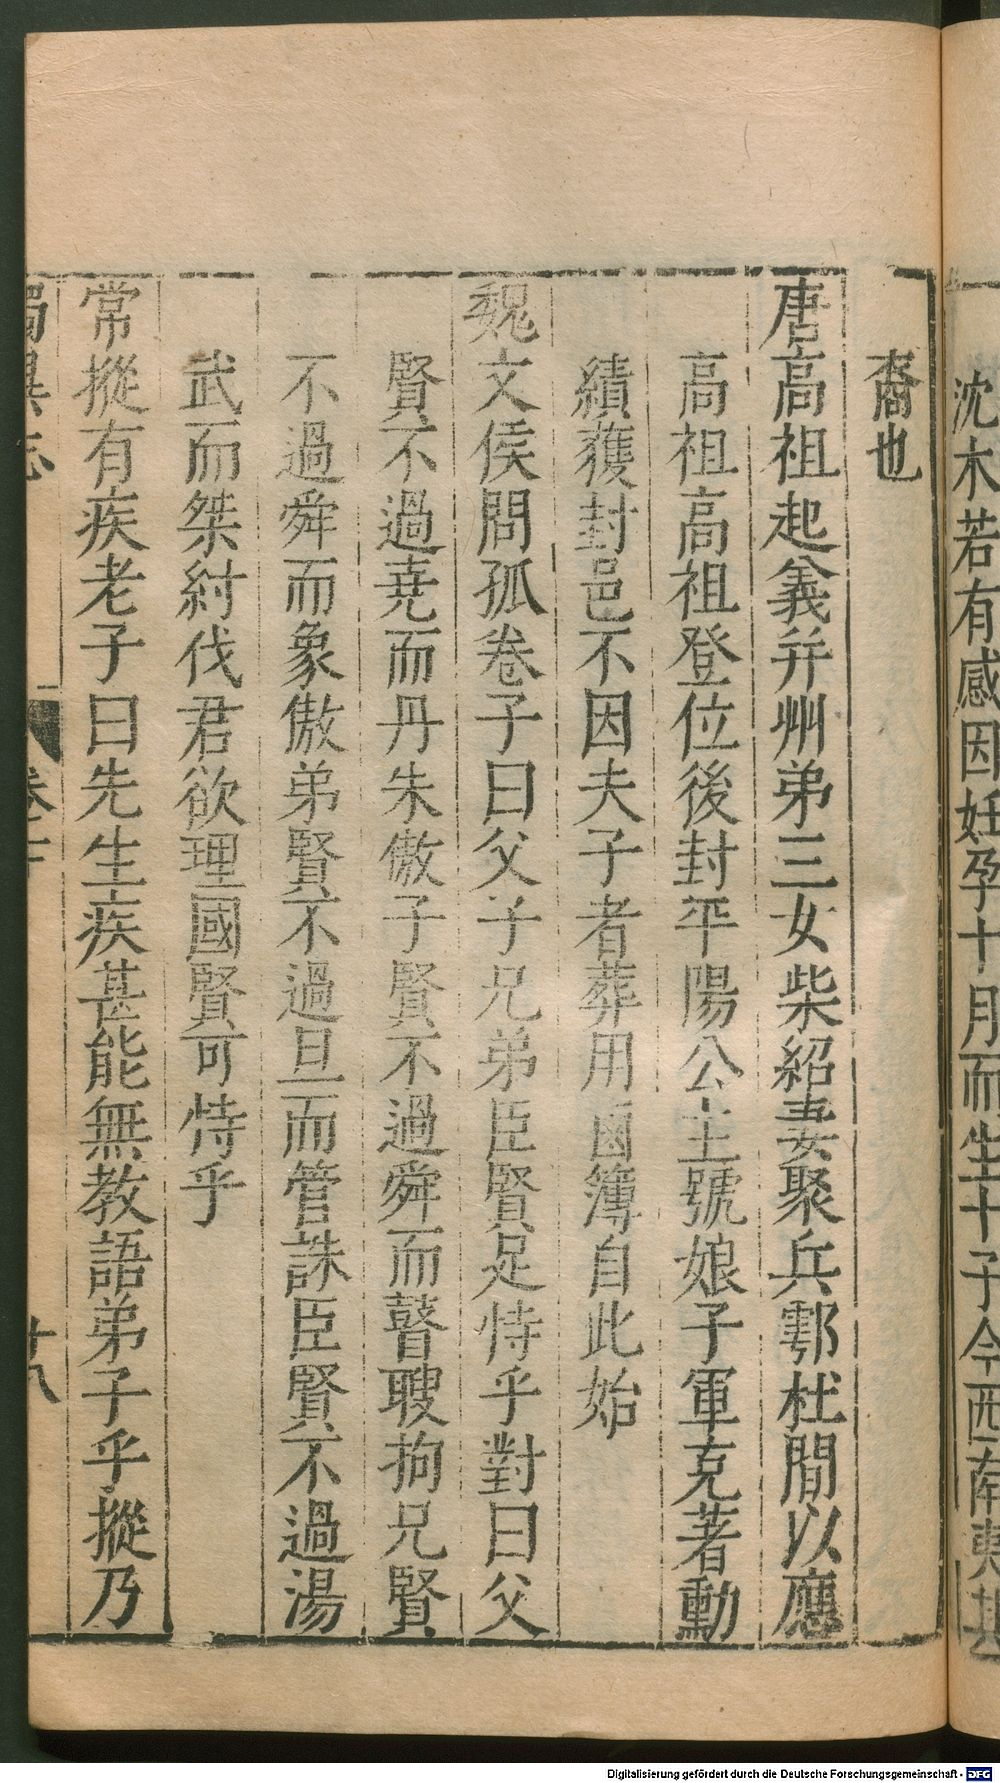 沈木若有感因妊孕十月而生十子今西南夷其
裔也
唐高祖起義并州弟三女柴紹妻聚兵鄠杜間以應
高祖高祖登位後封平陽公主號娘子軍克著勳
績獲封邑不因夫子者葬用鹵簿自此始
魏文侯問孤卷子曰父子兄弟臣賢足恃乎對曰父
賢不過堯而丹朱傲子賢不過舜而瞽瞍拘兄賢
不過舜而象傲弟賢不過旦而管誅臣賢不過湯
武而桀紂伐君欲理國賢可恃乎
常摐有疾老子曰先生疾甚能無教語弟子乎摐乃
獨異志 卷上 十八
Digitalisierung gefördert durch die Deutsche Forschungsgemeinschaft - DFG